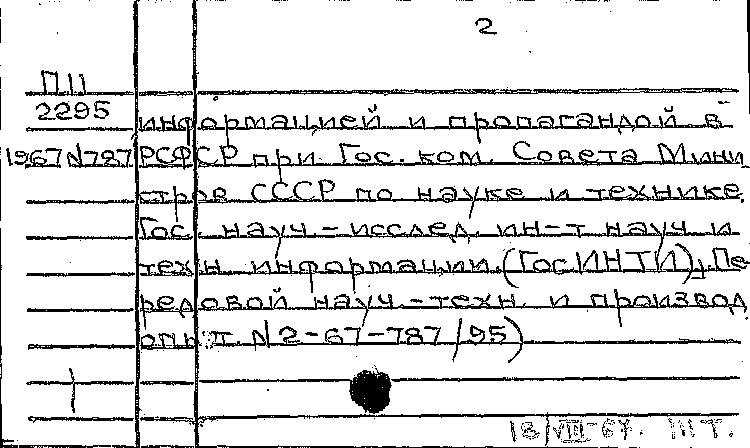 2
П11
2295
информацией и пропагандой в
1967 N787 РСФСР при Гос. ком. Совета Мини
стров СССР по науке и технике.
Гос. науч.-исслед. ин-т науч. и
техн. информации. (ГосИНТИ). Пе
редовой науч.-техн. и производ.
опыт. N 2-67-787/95)
18/VIII-67. Ш Т.